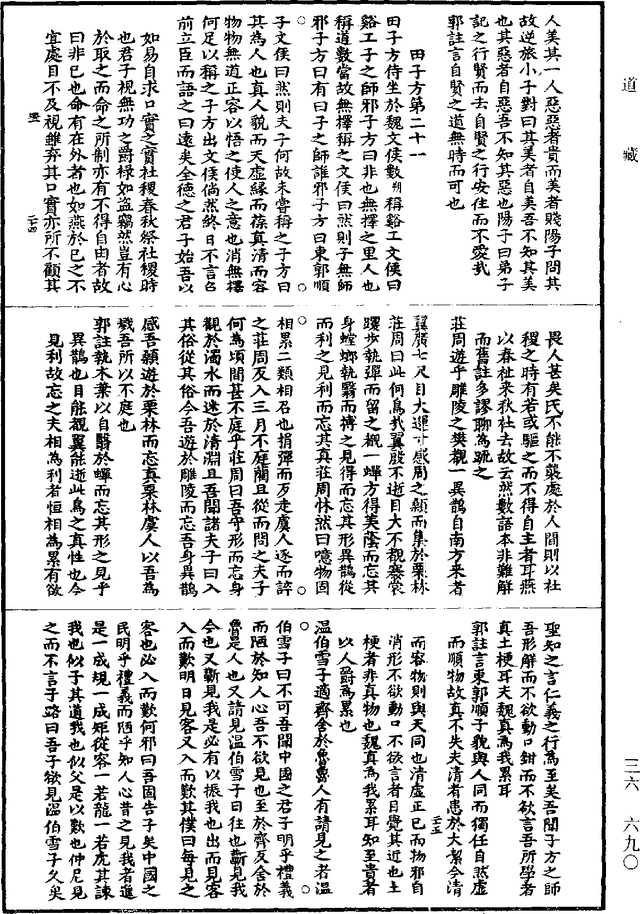 道藏
人美其一人惡惡者貴而美者賤陽子問其
故逆旅小子對曰其美者自美吾不知其美
也其惡者自惡吾不知其惡也陽子曰弟子
記之行賢而去自賢之行安往而不愛哉
郭註言自賢之道無時而可也
田子方第二十一
田子方侍坐於魏文侯數稱谿工文侯曰
谿工子之師邪子方曰非也無擇之里人也
稱道數當故無擇稱之文侯曰然則子無師
邪子方曰有曰子之師誰邪子方曰東郭順
子文侯曰然則夫子何故未嘗稱之子方曰
其為人也真人貌而天虛緣而葆真清而容
物物無道正容以悟之使人之意也消無擇
何足以稱之子方出文侯儻然終日不言召
前立臣而語之曰遠矣全德之君子始吾以
如易自求口實之實社稷春秋祭社稷時
也君子視無功之爵祿如盜竊然豈有心
於取之而命之所制亦有不得自由者故
曰非已也命有在外者也如燕於已之不
宜處目不及視雖棄其口實亦所不顧其
二十四
畏人甚矣氏不能不襲處於人間則以社
稷之時有若或驅之而不得自主者耳燕
以春社来秋社去故云然數語本非難解
而舊註多謬聊為疏之
莊周遊乎雕陵之樊覩一異鵲自南方来者
翼廣七尺目大運寸感周之顙而集於栗林
莊周曰此何鳥哉翼殷不逝目大不覩蹇裳
躩步執彈而留之覩一蟬方得美蔭而忘其
身螳螂執翳而搏之見得而忘其形異鵲從
而利之見利而忘其真莊周怵然曰噫物固
相累二類相召也捐彈而反走虞人逐而誶
之莊周反入三月不庭藺且從而問之夫子
何為頃間甚不庭乎莊周曰吾守形而忘身
觀於濁水而迷於清淵且吾聞諸夫子曰入
其俗從其俗今吾遊於雕陵而忘吾身異鵲
感吾顙遊於栗林而忘真栗林虞人以吾為
戮吾所以不庭也
郭註執木葉以自翳於蟬而忘其形之見乎
異鵲也目能覩翼能逝此鳥之真性也今
見利故忘之夫相為利者恒相為累有欲
聖知之言仁義之行為至矣吾聞子方之師
吾形解而不欲動口鉗而不欲言吾所學者
真土梗耳夫魏真為我累耳
郭註言東郭順子貌與人同而獨任自然虛
而順物故真不失夫清者患於大絜今清
二十五
而容物則與天同也清虛正已而物邪自
消形不欲動口不欲言者日覺其近也土
梗者非真物也魏真為我累耳知至貴者
以人爵為累也
溫伯雪子適齊舍於魯魯人有請見之者溫
伯雪子曰不可吾聞中國之君子明乎禮義
而陋於知人心吾不欲見也至於齊反舍於
魯是人也又請見溫伯雪子曰往也蘄見我
今也又蘄見我是必有以振我也出而見客
入而歎明日見客又入而歎其僕曰每見之
客也必入而歎何邪曰吾固告子矣中國之
民明乎禮義而陋乎知人心昔之見我者進
是一成規一成矩從容一若龍一若虎其諫
我也似子其道我也似父是以歎也仲尼見
之而不言子路曰吾子欲見溫伯雪子久矣
三六 六九〇